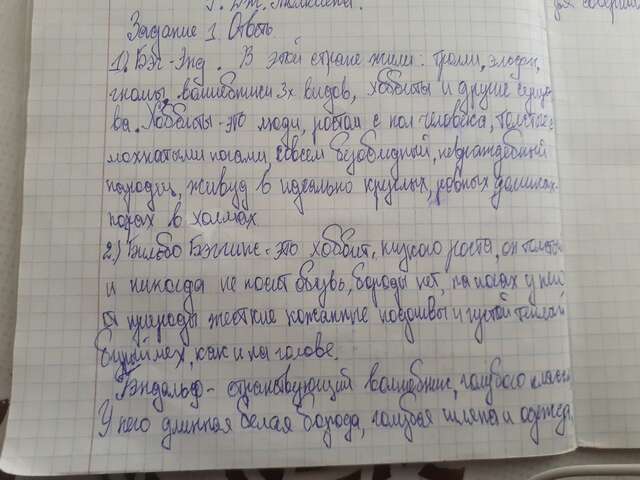 Дж. Толкиена.
Задание 1. Ответь
1). Бэг-Энд. В этой стране жили: тролли, эльфы,
гномы, волшебники 3х видов, хоббиты и другие сущест
ва. Хоббиты-это люди, ростом с пол человека, толстые с
мохнатыми ногами, совсем безобидный, невраждебный
народец, живуд в идеально круглых, ровных домиках-
норах в холмах.
2.) Бильбо Бэггинс-это хоббит, низкого роста, он толсты
и никогда не носит обувь, бороды нет, на ногах у него
от природы жесткие кожанные подошвы и густой теплый
бурый мех, как и на голове.
Гэндальф-странствующий волшебник, голубого класса
У него длинная белая борода, голубая шляпа и одежда.